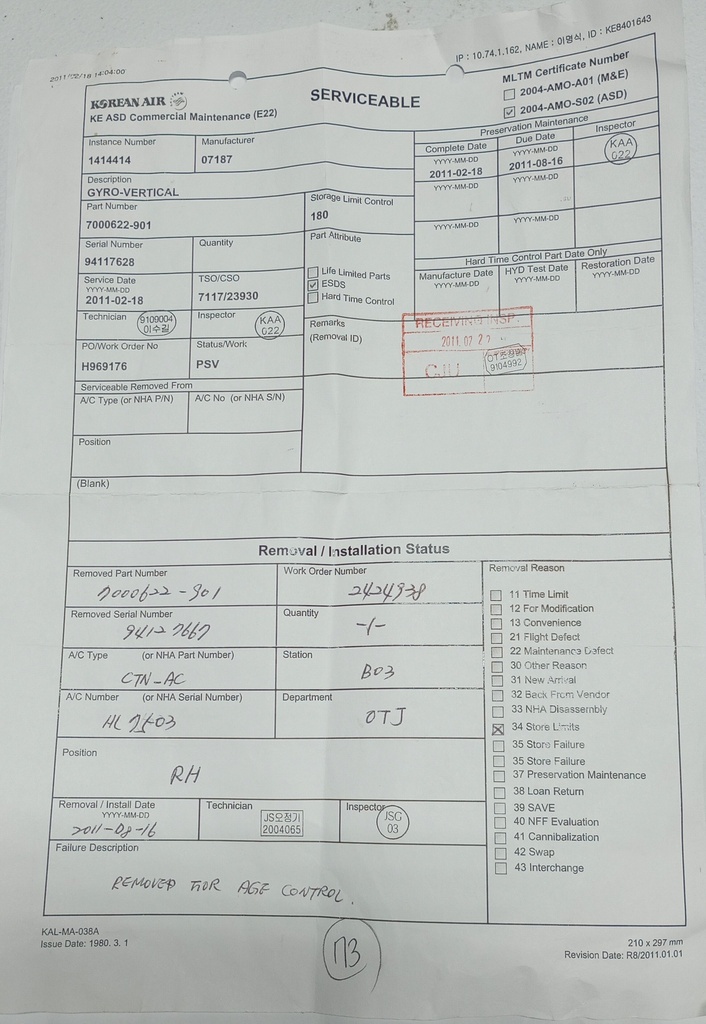 2011/02/18 14:04:00
IP : 10.74.1.162, NAME : 이명식, ID : KE8401643
KOREAN AIR
KE ASD Commercial Maintenance (E22)
SERVICEABLE
MLTM Certificate Number
2004-AMO-A01 (M&E)
2004-AMO-S02 (ASD)
Instance Number
1414414
Manufacturer
07187
Preservation Maintenance
Complete Date
YYYY-MM-DD
2011-02-18
YYYY-MM-DD
YYYY-MM-DD
Due Date
YYYY-MM-DD
2011-08-16
YYYY-MM-DD
YYYY-MM-DD
Inspector
KAA
022
Description
GYRO-VERTICAL
Part Number
7000622-901
Storage Limit Control
180
Serial Number
94117628
Quantity
Part Attribute
Life Limited Parts
ESDS
Hard Time Control
Hard Time Control Part Date Only
Manufacture Date
YYYY-MM-DD
HYD Test Date
YYYY-MM-DD
Restoration Date
YYYY-MM-DD
Service Date
YYYY-MM-DD
2011-02-18
TSO/CSO
7117/23930
Technician
9109004
이수길
Inspector
KAA
022
Remarks
(Removal ID)
RECEIVING INSP.
2011. 02. 2
CJU
9104992
PO/Work Order No
H969176
Status/Work
PSV
Serviceable Removed From
A/C Type (or NHA P/N)
A/C No (or NHA S/N)
Position
(Blank)
Removal / Installation Status
Removed Part Number
7000622-901
Work Order Number
2424938
Removed Serial Number
94127667
Quantity
-1-
A/C Type (or NHA Part Number)
CTN-AC
Station
B03
A/C Number (or NHA Serial Number)
HL
Department
OTJ
Position
RH
Removal / Install Date
YYYY-MM-DD
2011-08-16
Technician
JS오정기
2004065
Inspector
JSG
03
Failure Description
REMOVED FOR AGE CONTROL.
Removal Reason
11 Time Limit
12 For Modification
13 Convenience
21 Flight Defect
22 Maintenance Defect
30 Other Reason
31 New Arrival
32 Back From Vendor
33 NHA Disassembly
34 Store Limits
35 Store Failure
35 Store Failure
37 Preservation Maintenance
38 Loan Return
39 SAVE
40 NFF Evaluation
41 Cannibalization
42 Swap
43 Interchange
KAL-MA-038A
Issue Date: 1980. 3. 1
113
210 x 297 mm
Revision Date: R8/2011.01.01